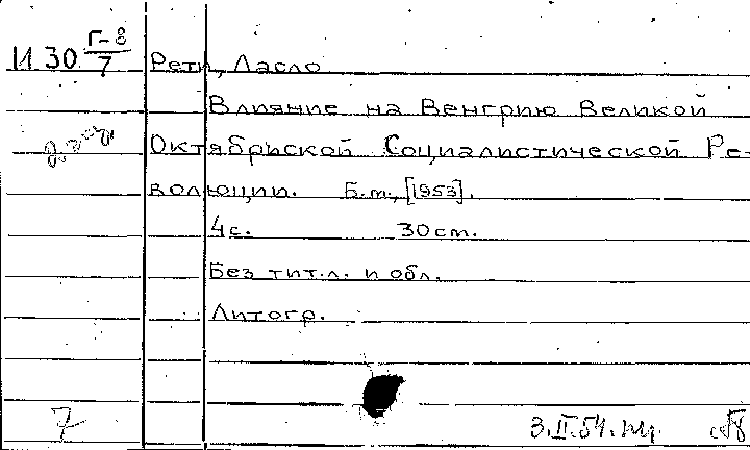 И 30 Г-8/7 Рети, Ласло
Влияние на Венгрию Великой
Октябриской Социалистической Ре-
волюции. Б.м., [1953].
4с. 30 cm.
Без тит.л. и обл.
Литогр.
7
3.II.54.